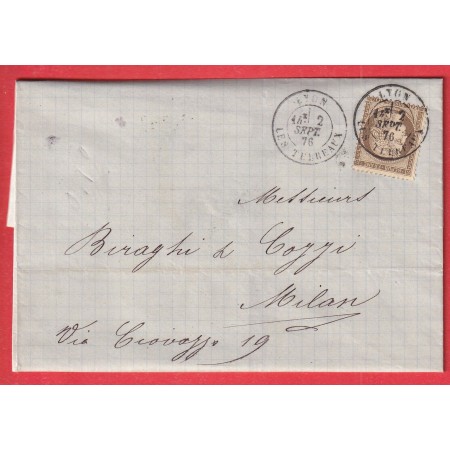 LYON
1E
2
SEPT.
76
LES TERREAUX
LYON
1E
2
SEPT.
76
Messieurs
Biraghi & Cozzi
Milan
Via 19